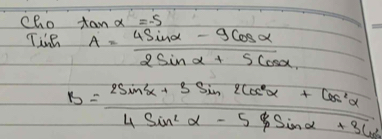 Cho tan α = -5
Tính A = (4 Sin α - 9 Cos α) / (2 Sin α + 5 Cos α)
B = (2 Sin² α + 3 Sin 2 Cos² α + Cos² α) / (4 Sin² α - 5 Sin α + 3